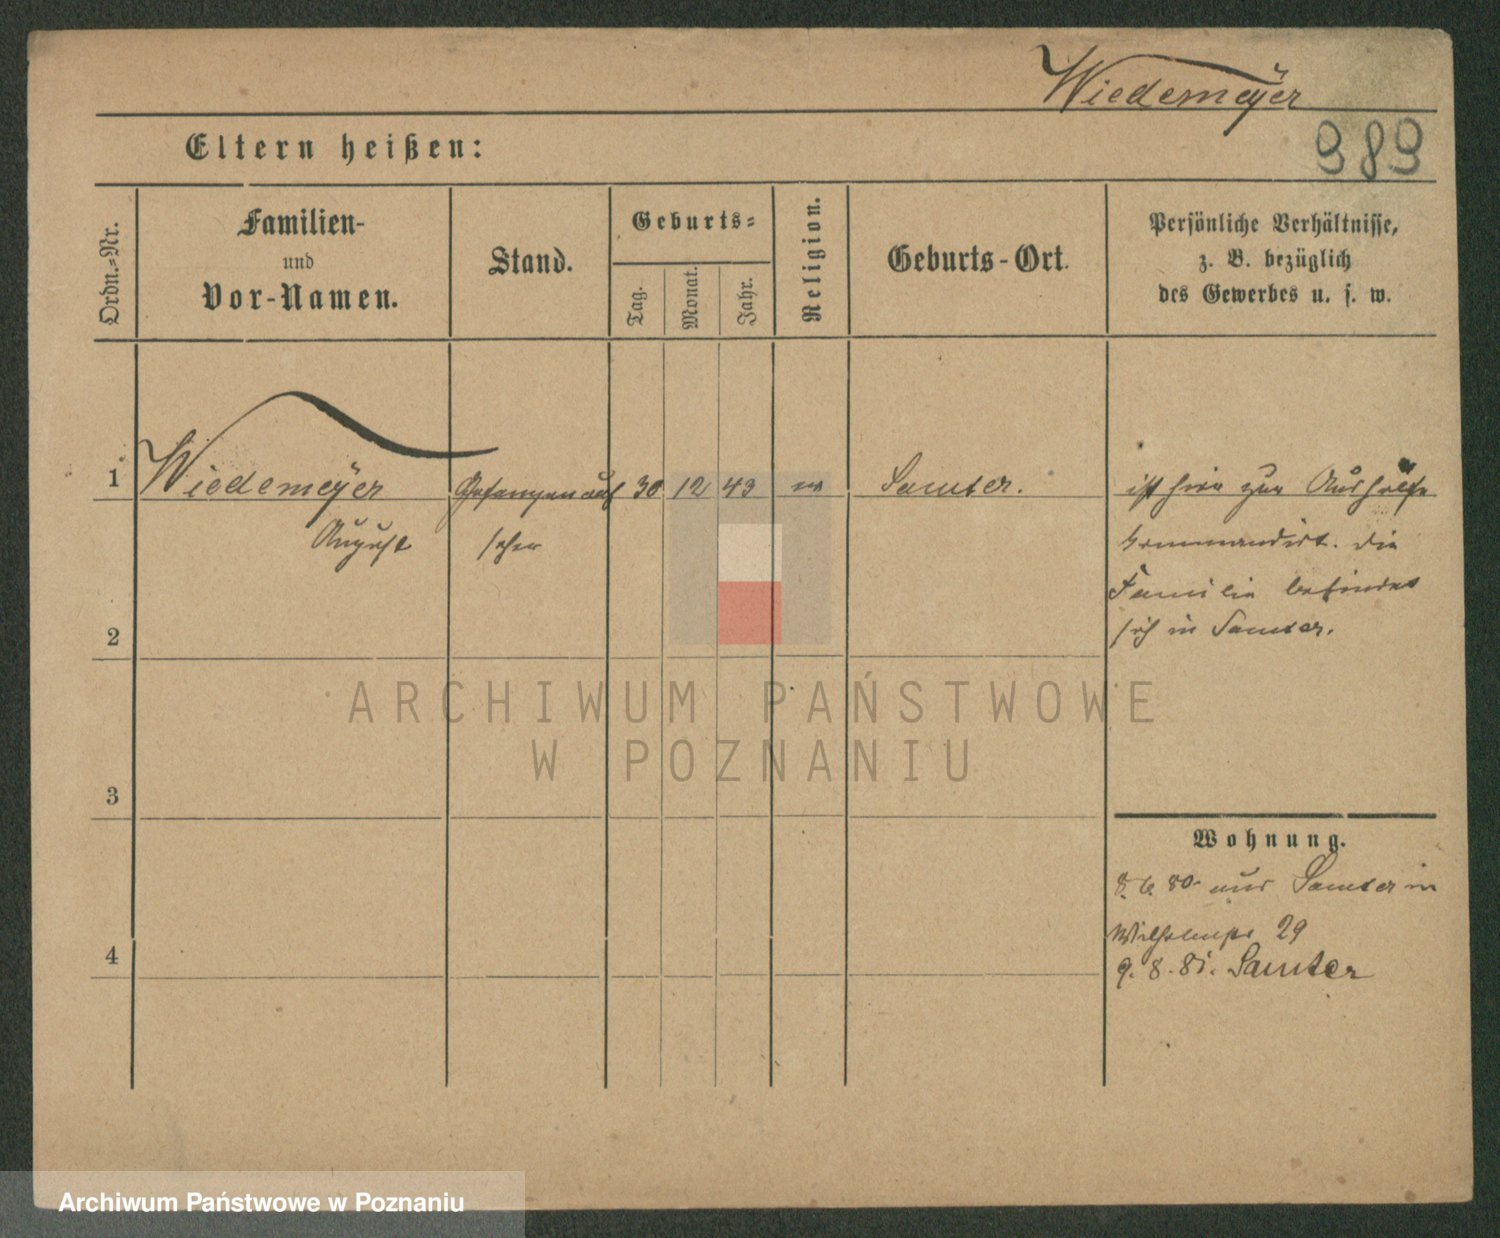 Wiedemeÿer
989
Eltern heißen:
Ordn.-Nr.
Familien-
und
Vor-Namen.
Stand.
Geburts-
Tag.
Monat.
Jahr.
Religion.
Geburts-Ort.
Persönliche Verhältnisse,
z. B. bezüglich
des Gewerbes u. s. w.
1
Wiedemeÿer
August
Gefangenauf
seher
30
12
43
Samter.
ist hier zur Aushülfe
kommandirt. Die
Familie befindet
sich in Samter.
2
3
4
Wohnung.
8. 6. 80 aus Samter in
Wilhelmspl 29
9. 8. 81. Samter
ARCHIWUM PAŃSTWOWE
W POZNANIU
Archiwum Państwowe w Poznaniu